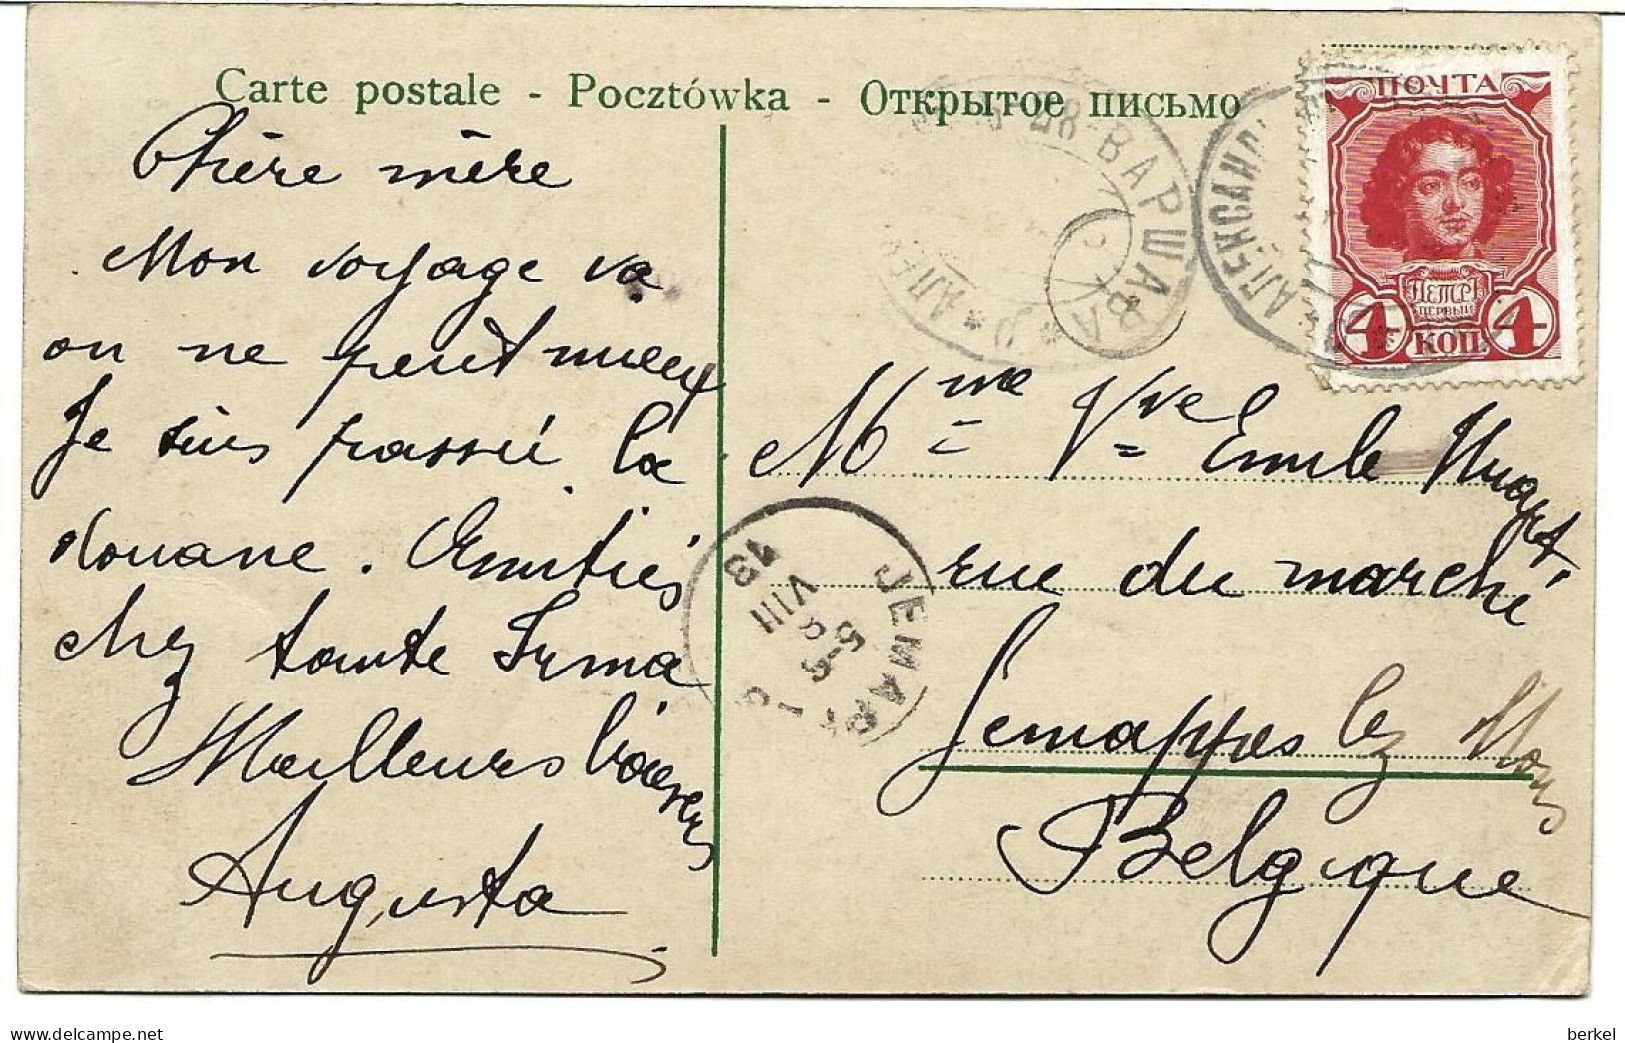 Carte postale - Pocztówka - Открытое письмо
Chère mère
Mon voyage va
on ne peut mieux
Je suis passé la
douane. Amitiés
chez tante Irma
Meilleurs baisers
Augusta
ПОЧТА
ПЕТРЪ
ПЕРВЫЙ
4 КОП. 4
ВАРШАВА
АЛЕКСАНДР
Mme Vve Emile Huart
rue du marché
Jemappes lez Mons
Belgique
JEMAPPES
5-6
8
VIII
13
delcampe.net
berkel